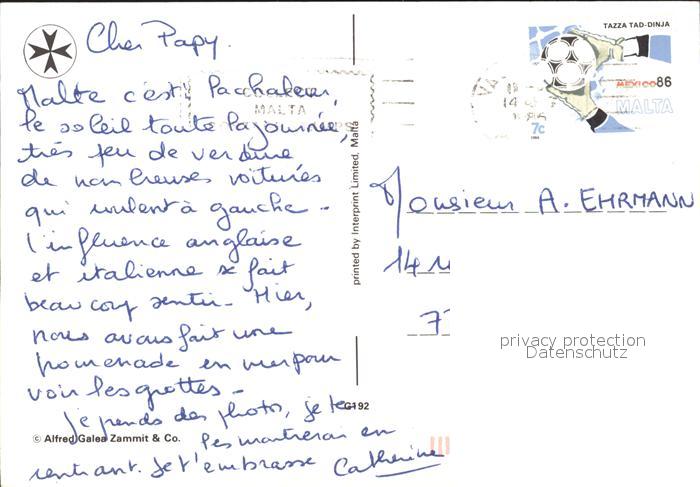 Cher Papy.
Malte c'est la chaleur,
le soleil toute la journée,
très peu de verdure
de nombreuses voitures
qui roulent à gauche -
l'influence anglaise
et italienne se fait
beaucoup sentir - Hier,
nous avons fait une
promenade en mer pour
voir les grottes -
je prends des photos, je te
les montrerai en
rentrant. Je t'embrasse Catherine
© Alfred Galea Zammit & Co.
G192
printed by Interprint Limited, Malta
MALTA
TAZZA TAD-DINJA
MEXICO86
MALTA
7c
Monsieur A. EHRMANN
14
7
privacy protection
Datenschutz